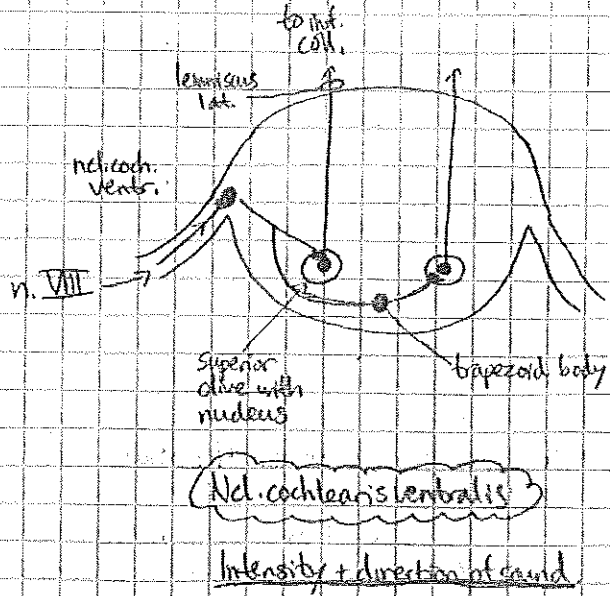 to inf.
coll.
lemniscus
lat.
ncl.coch.
ventr.
n. VIII
superior
olive with
nucleus
trapezoid body
Ncl. cochlearis ventralis
Intensity + direction of sound